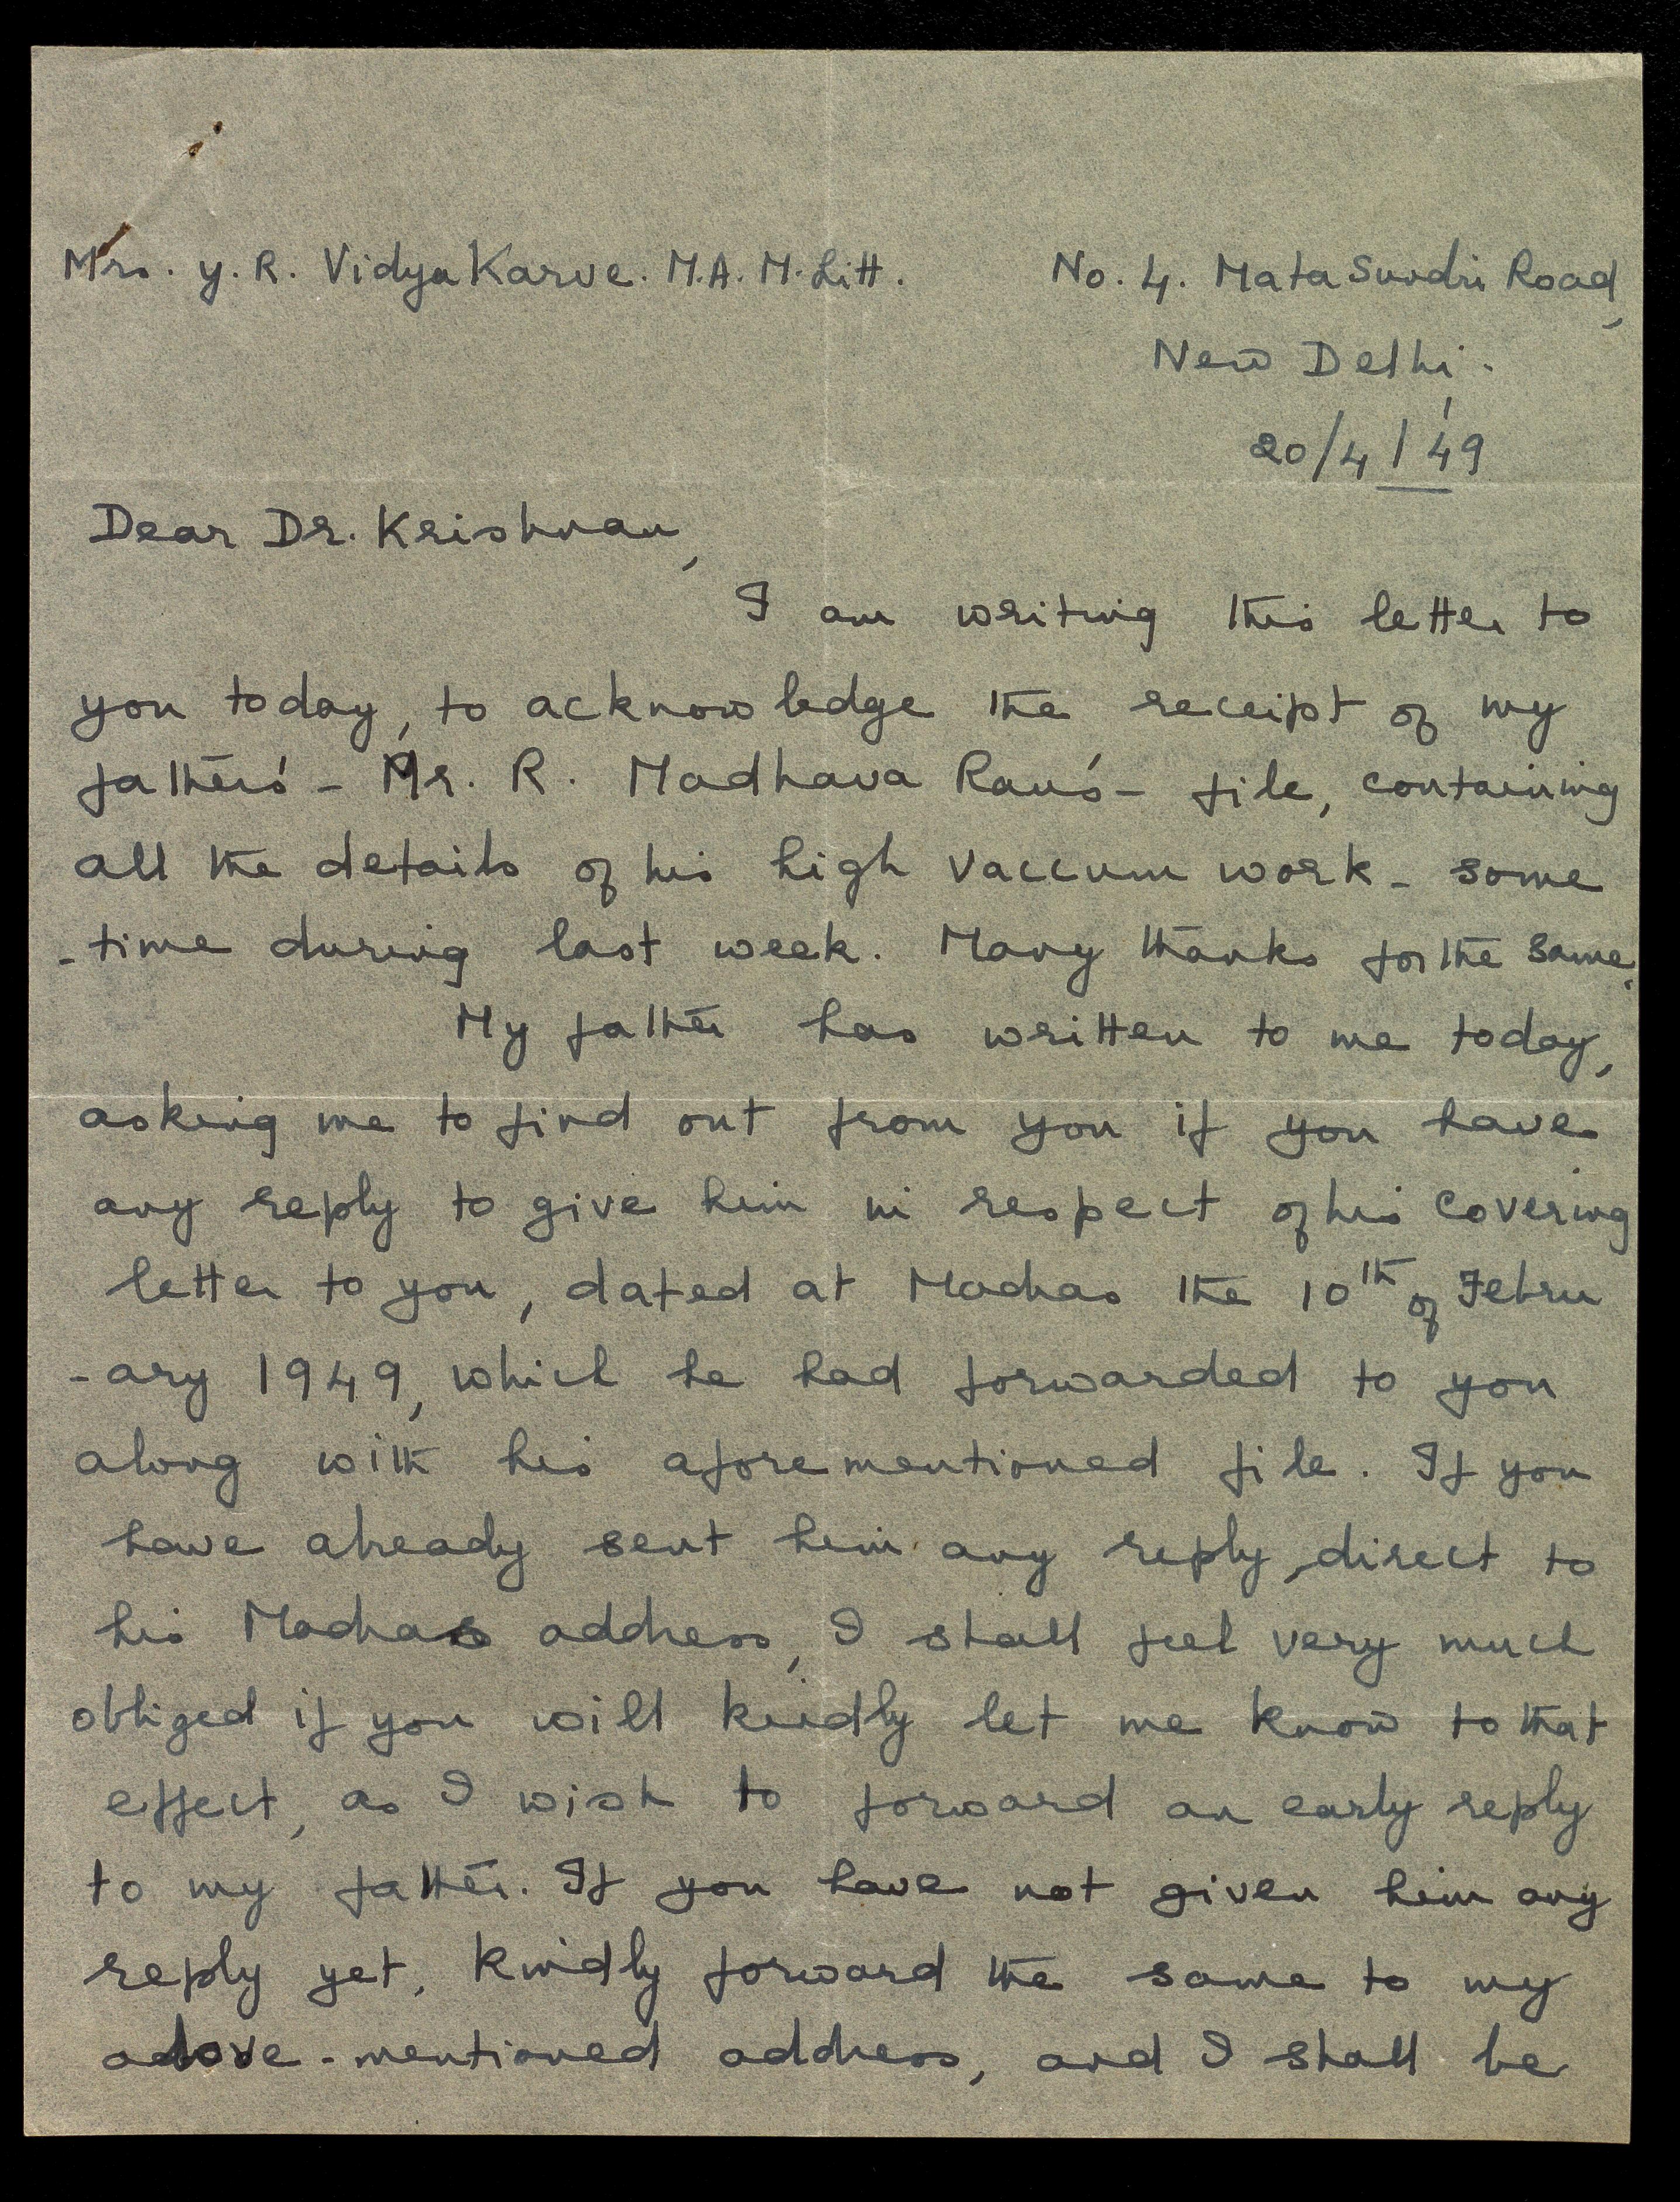 Mrs. Y. R. Vidya Karve. M.A. M.Litt.
No. 4. Mata Sundri Road,
New Delhi.
20/4/'49
Dear Dr. Krishnan,
I am writing this letter to
you today, to acknowledge the receipt of my
father's - Mr. R. Madhava Rau's - file, containing
all the details of his high vaccum work - some
-time during last week. Many thanks for the same.
My father has written to me today,
asking me to find out from you if you have
any reply to give him in respect of his covering
letter to you, dated at Madras the 10th of Febru
-ary 1949, which he had forwarded to you
along with his aforementioned file. If you
have already sent him any reply, direct to
his Madras address, I shall feel very much
obliged if you will kindly let me know to that
effect, as I wish to forward an early reply
to my father. If you have not given him any
reply yet, kindly forward the same to my
above-mentioned address, and I shall be